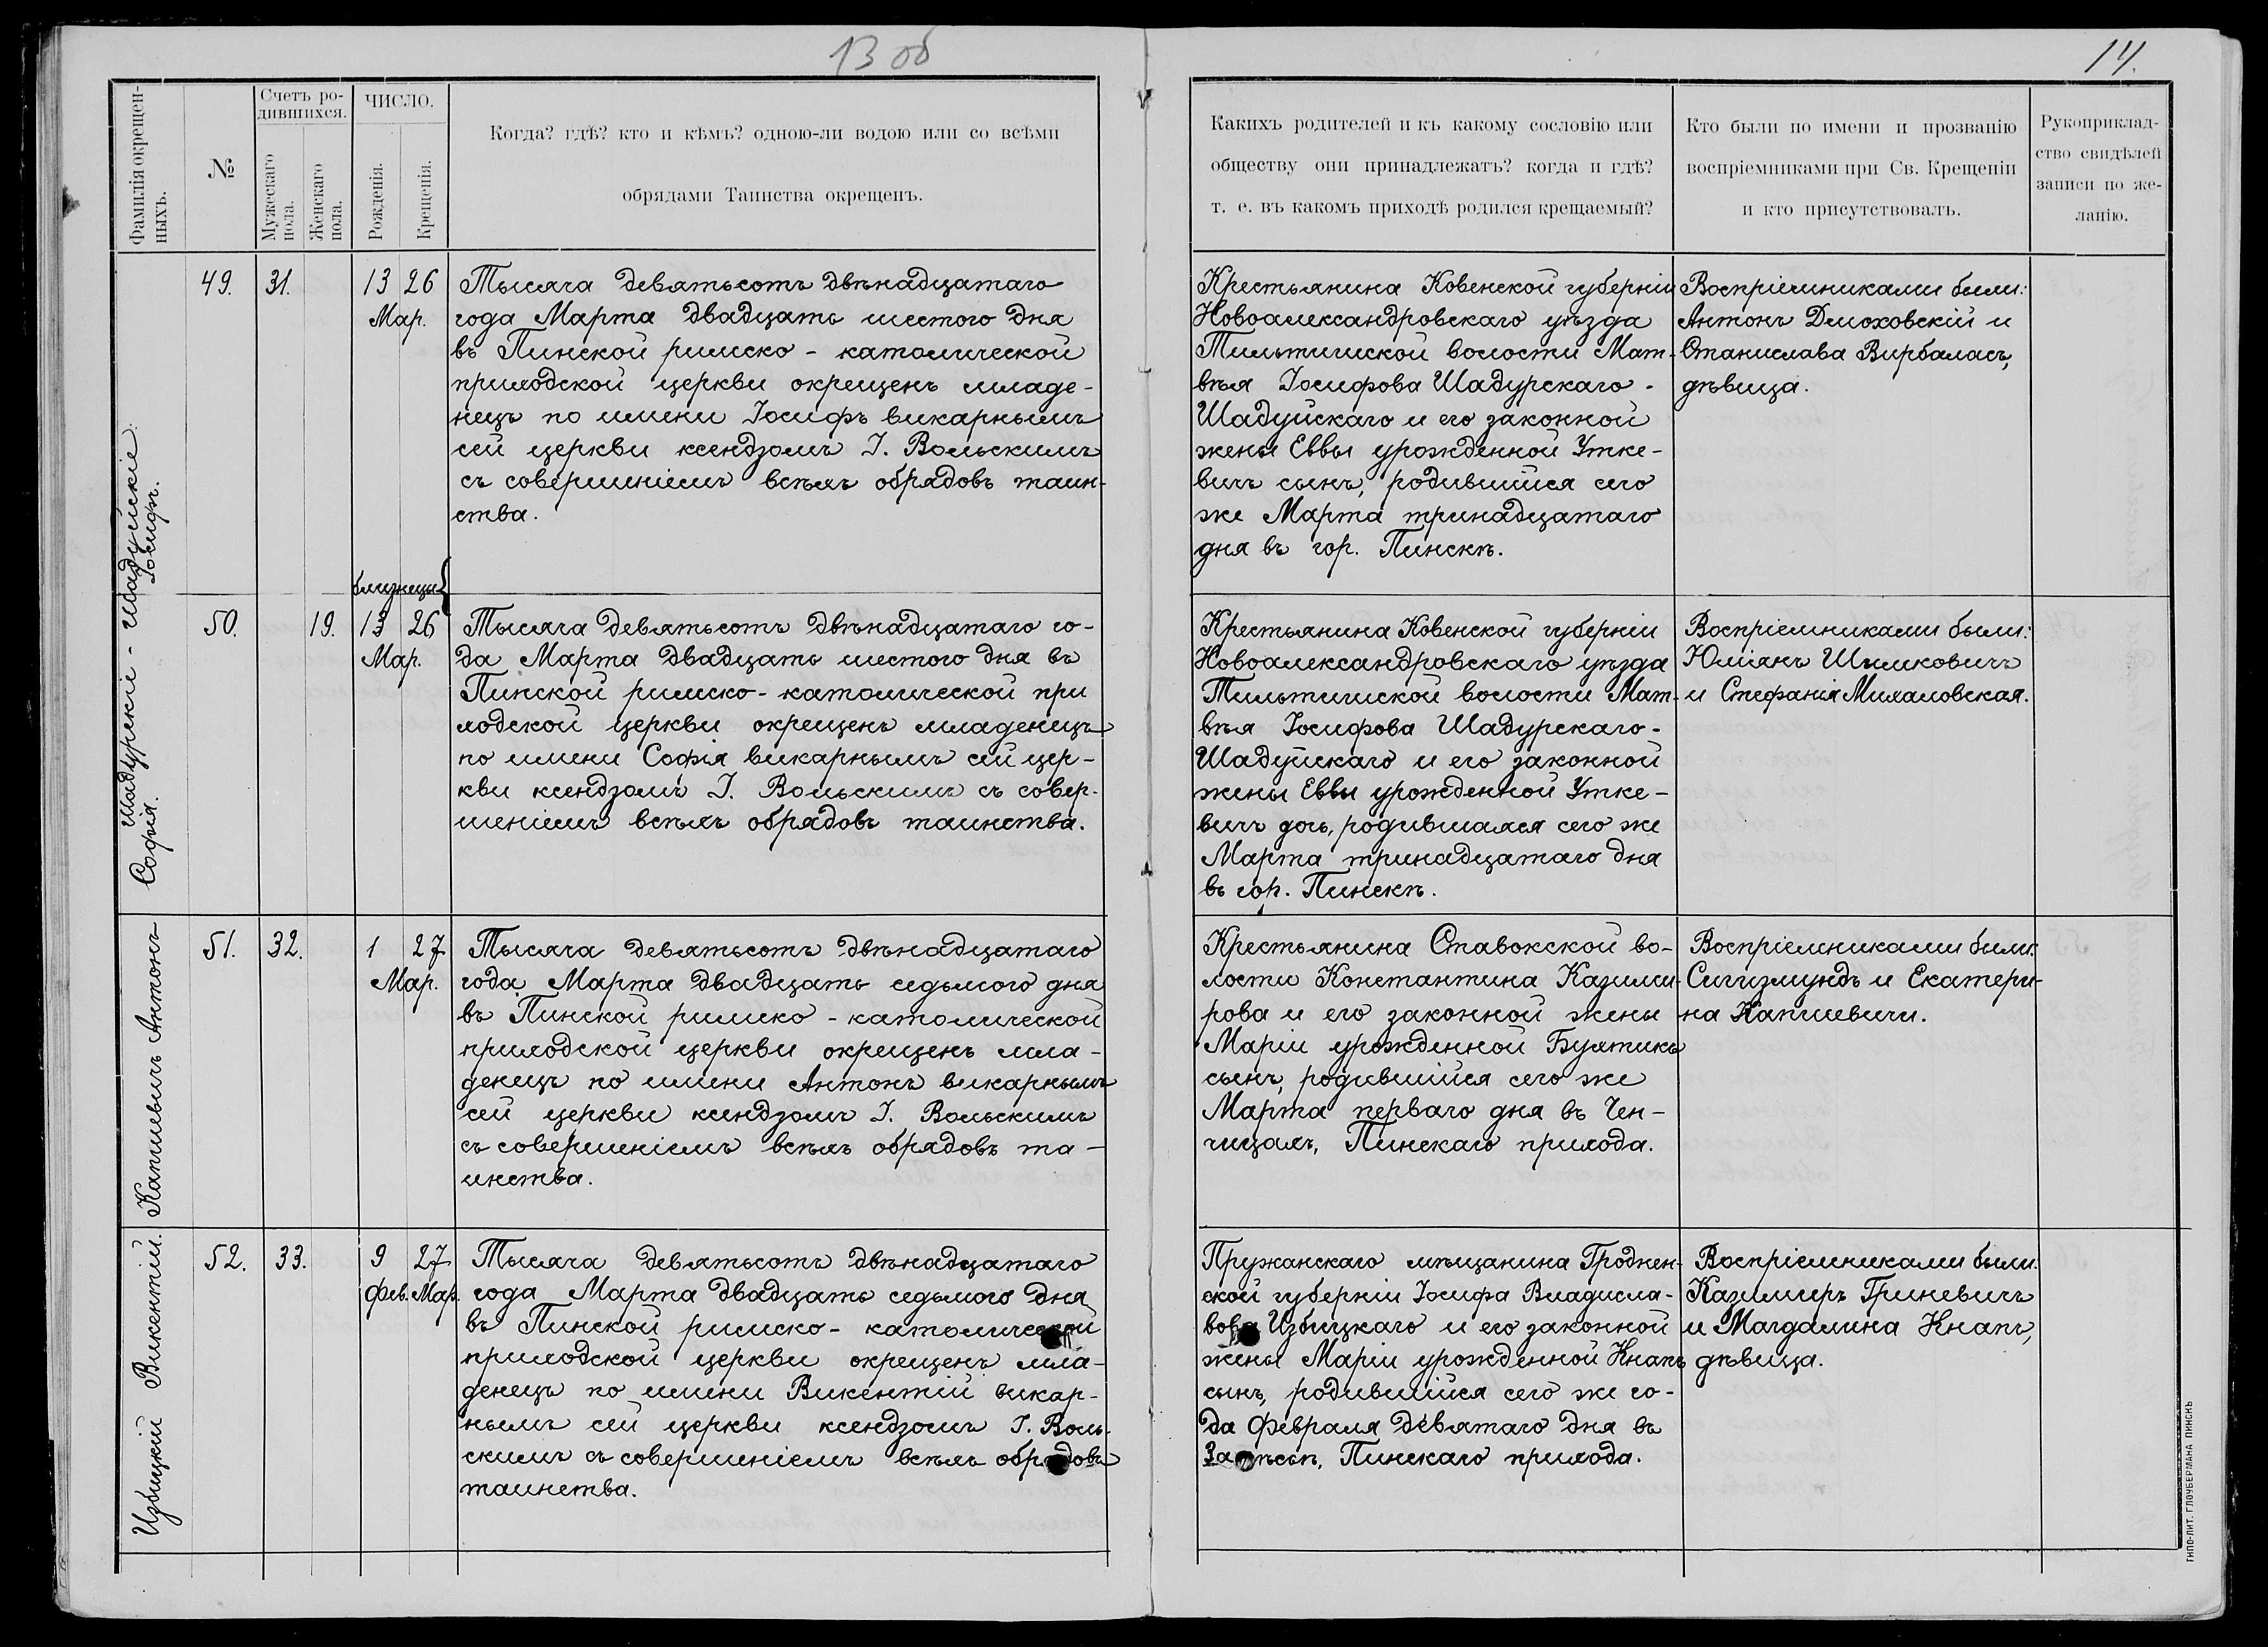 13 об
Фамилія окрещен-
ныхъ.
№
Счетъ ро-
дившихся.
Мужескаго
пола.
Женскаго
пола.
ЧИСЛО.
Рожденія.
Крещенія.
Когда? гдѣ? кто и кѣмъ? одною-ли водою или со всѣми
обрядами Таинства окрещенъ.
Шадурскіе - Шадуйскіе:
Іосифъ.
49. 31. 13 26
Мар.
Тысяча девятьсотъ двѣнадцатаго
года Марта двадцать шестого дня
въ Пинской римско - католической
приходской церкви окрещенъ младе-
нецъ по имени Іосифъ викарнымъ
сей церкви ксендзомъ І. Вольскимъ
съ совершеніемъ всѣхъ обрядовъ таин-
ства.
близнецы
Софія.
50. 19. 13 26
Мар.
Тысяча девятьсотъ двѣнадцатаго го-
да Марта двадцать шестого дня въ
Пинской римско - католической при
ходской церкви окрещенъ младенецъ
по имени Софія викарнымъ сей цер-
кви ксендзомъ І. Вольскимъ съ совер-
шеніемъ всѣхъ обрядовъ таинства.
Капшевичъ Антонъ
51. 32. 1 27
Мар.
Тысяча девятьсотъ двѣнадцатаго
года Марта двадцать седьмого дня
въ Пинской римско - католической
приходской церкви окрещенъ мла-
денецъ по имени Антонъ викарнымъ
сей церкви ксендзомъ І. Вольскимъ
съ совершеніемъ всѣхъ обрядовъ та-
инства.
Избицкій Викентій.
52. 33. 9 27
Фев. Мар.
Тысяча девятьсотъ двѣнадцатаго
года Марта двадцать седьмого дня
въ Пинской римско - католической
приходской церкви окрещенъ мла-
денецъ по имени Викентій викар-
нымъ сей церкви ксендзомъ І. Воль-
скимъ съ совершеніемъ всѣхъ обрядовъ
таинства.
14.
Какихъ родителей и къ какому сословію или
обществу они принадлежатъ? когда и гдѣ?
т. е. въ какомъ приходѣ родился крещаемый?
Кто были по имени и прозванію
воспріемниками при Св. Крещеніи
и кто присутствовалъ.
Рукоприклад-
ство свидѣлей
записи по же-
ланію.
Крестьянина Ковенской губерніи
Новоалександровскаго уѣзда
Тильтишской волости Мат-
вѣя Іосифова Шадурскаго -
Шадуйскаго и его законной
жены Еввы урожденной Утке-
вичъ сынъ, родившійся сего
же Марта тринадцатаго
дня въ гор. Пинскѣ.
Воспріемниками были:
Антонъ Дмоховскій и
Станислава Вирбаласъ,
дѣвица.
Крестьянина Ковенской губерніи
Новоалександровскаго уѣзда
Тильтишской волости Мат-
вѣя Іосифова Шадурскаго -
Шадуйскаго и его законной
жены Еввы урожденной Утке-
вичъ дочь, родившаяся сего же
Марта тринадцатаго дня
въ гор. Пинскѣ.
Воспріемниками были:
Юліанъ Шымковичъ
и Стефанія Михаловская.
Крестьянина Ставокской во-
лости Константина Казими-
рова и его законной жены
Маріи урожденной Бултикъ
сынъ, родившійся сего же
Марта перваго дня въ Чен-
чицахъ, Пинскаго прихода.
Воспріемниками были:
Сигизмундъ и Екатери-
на Капшевичи.
Пружанскаго мѣщанина Гроднен-
ской губерніи Іосифа Владисла-
вова Избицкаго и его законной
жены Маріи урожденной Кнапъ
сынъ, родившійся сего же го-
да Февраля девятаго дня въ
Пинскаго прихода.
Воспріемниками были:
Казимиръ Гриневичъ
и Магдалина Кнапъ,
дѣвица.
ТИПО-ЛИТ. ГЛОУБЕРМАНА ПИНСКЪ